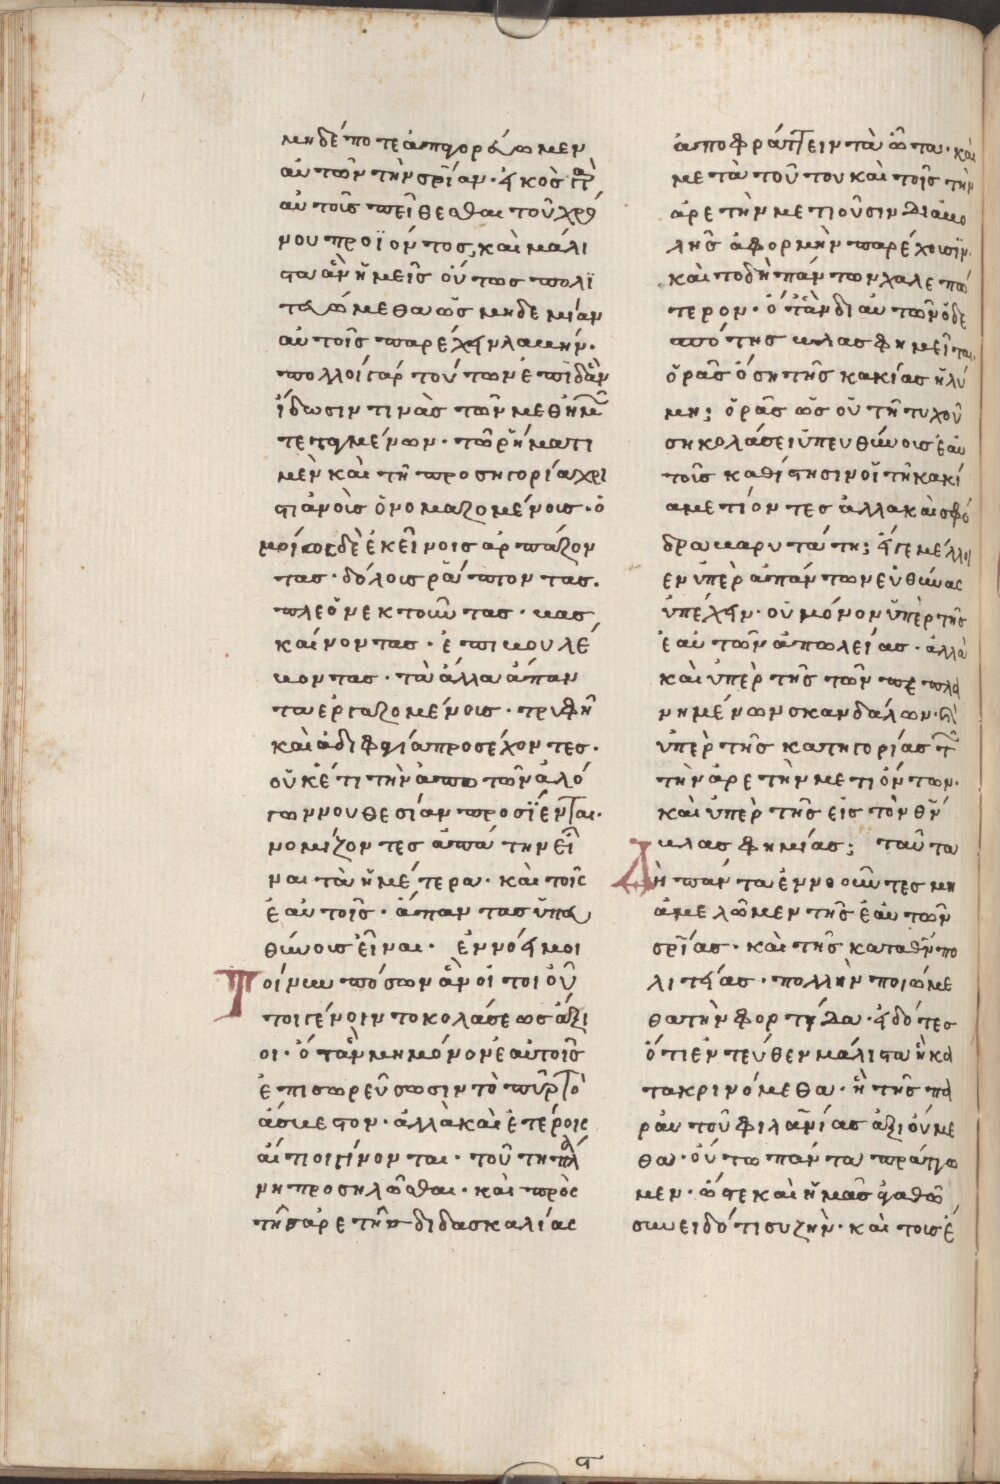 μηδέποτε ἀπαγορεύωμεν
αὐτῶν τὴν σρίαν· εἰκὸς γὰρ
αὐτοῖς πείθεσθαι τοῦ χρό
νου προϊόντος, καὶ μάλι
στα ἂν ἡμεῖς οὕτως πολϊ
τευώμεθα ὡς μηδεμίαν
αὐτοῖς παρέχειν λαβήν·
πολλοὶ γὰρ τούτων ἐπϊδὰν
ἴδωσιν τινὰς τῶν μεθημῶν
τεταγμένων· τῶ ῥήματι
μὲν καὶ τῆ προσηγορία χρι
στιανοὶς ὀνομαζομένοις· ὁ
μοίως δὲ ἐκεῖνοις ἁρπάζον
τας· δόλοις ῥάπτοντας.
πλεονεκτοῦντας· βας
καίνοντας· ἐπιβουλέ
βοντας· τὰ ἄλλα ἅπαν
τα ἐργαζομένοις· τρυφῆ
καὶ ἀδιφαγία προσέχοντες·
οὐκέτι τὴν ἀπὸ τῶν λό
γων νουθεσίαν προσϊένται·
νομίζοντες ἀπάτην εἶ
ναι τὰ ἡμέτερα· καὶ τοῖς
ἑαυτοῖς· ἅπαντας ὑπευ
θύνοις εἶναι· ἐννόει μοι
Τοίνυν πόσων ἂν οἱ τοιοῦ
τοι γένοιντο κολάσεως ἄξι
οι· ὅταν μὴ μόνον ἑαυτοῖς
ἐπισωρεύσωσιν τὸ πῦρ τὸ
ἄσβεστον· ἀλλὰ καὶ ἑτέροις
αἴτιοι γίνονται· τοῦ τῆ πλά
νη προσηλῶσθαι· καὶ πρὸς
τῆς ἀρετῆς διδασκαλίας
ἀποφράττειν τὰ ὦτα· καὶ
μετὰ τοῦτον καὶ τοῖς τὴν
ἀρετὴν μετιοῦσιν διαβο
λῆς ἀφορμὴν παρέχουσϊν·
καὶ τὸ δὴ πάντων χαλεπώ
τερον· ὅταν δι αὐτῶν ὁ δε
σπότης βλασφημεῖται·
ὁρᾶς ὅση τῆς κακίας ἡ λύ
μη; ὁρᾶς ὡς οὐ τῆ τυχοῦ
ση κολάσει ὑπευθύνοις ἑαυ
τοῖς καθίστησιν οἳ τὴ κακί
α μετιόντες ἀλλὰ καὶ σφό
δρα βαρυτάτη; εἴγε μέλλοι
εν ὑπὲρ ἁπάντων εὐθύνας
ὑπέχειν· οὐ μόνον ὑπὲρ τῆς
ἑαυτῶν ἀπωλείας· ἀλλὰ
καὶ ὑπὲρ τῆς τῶν πε πλα
νημένων σκανδάλων· καὶ
ὑπὲρ τῆς κατηγορίας τῶν
τὴν ἀρετὴν μετιόντων·
καὶ ὑπὲρ τῆς εἰς τὸν θν
βλασφημίας; ταῦτα
Δὴ πάντα ἐννοοῦντες μὴ
ἀμελῶμεν τῆς ἑαυτῶν
σρίας· καὶ τῆς κατὰ θν πο
λιτείας· πολλὴν ποιώμε
θα τὴν φορτίδα· εἰδότες
ὅτι ἐντεύθεν μάλιστα ἢ κα
τακρινόμεθα· ἢ τῆς πα
ρ αυτοῦ φιλανίας ἀξιούμε
θα· οὕτω πάντα πράττω
μεν· ὥστε καὶ ἡμᾶς ἀγαθῶ
συνειδότι συζὴν· καὶ τοις ἐ